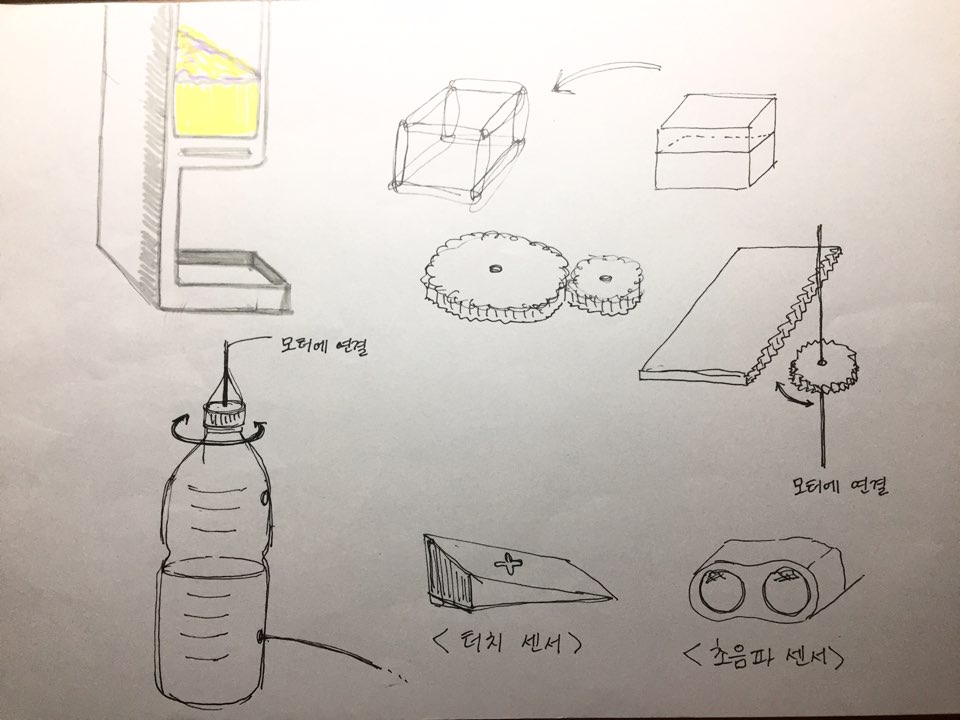 모터에 연결
모터에 연결
< 터치 센서 >
< 초음파 센서 >